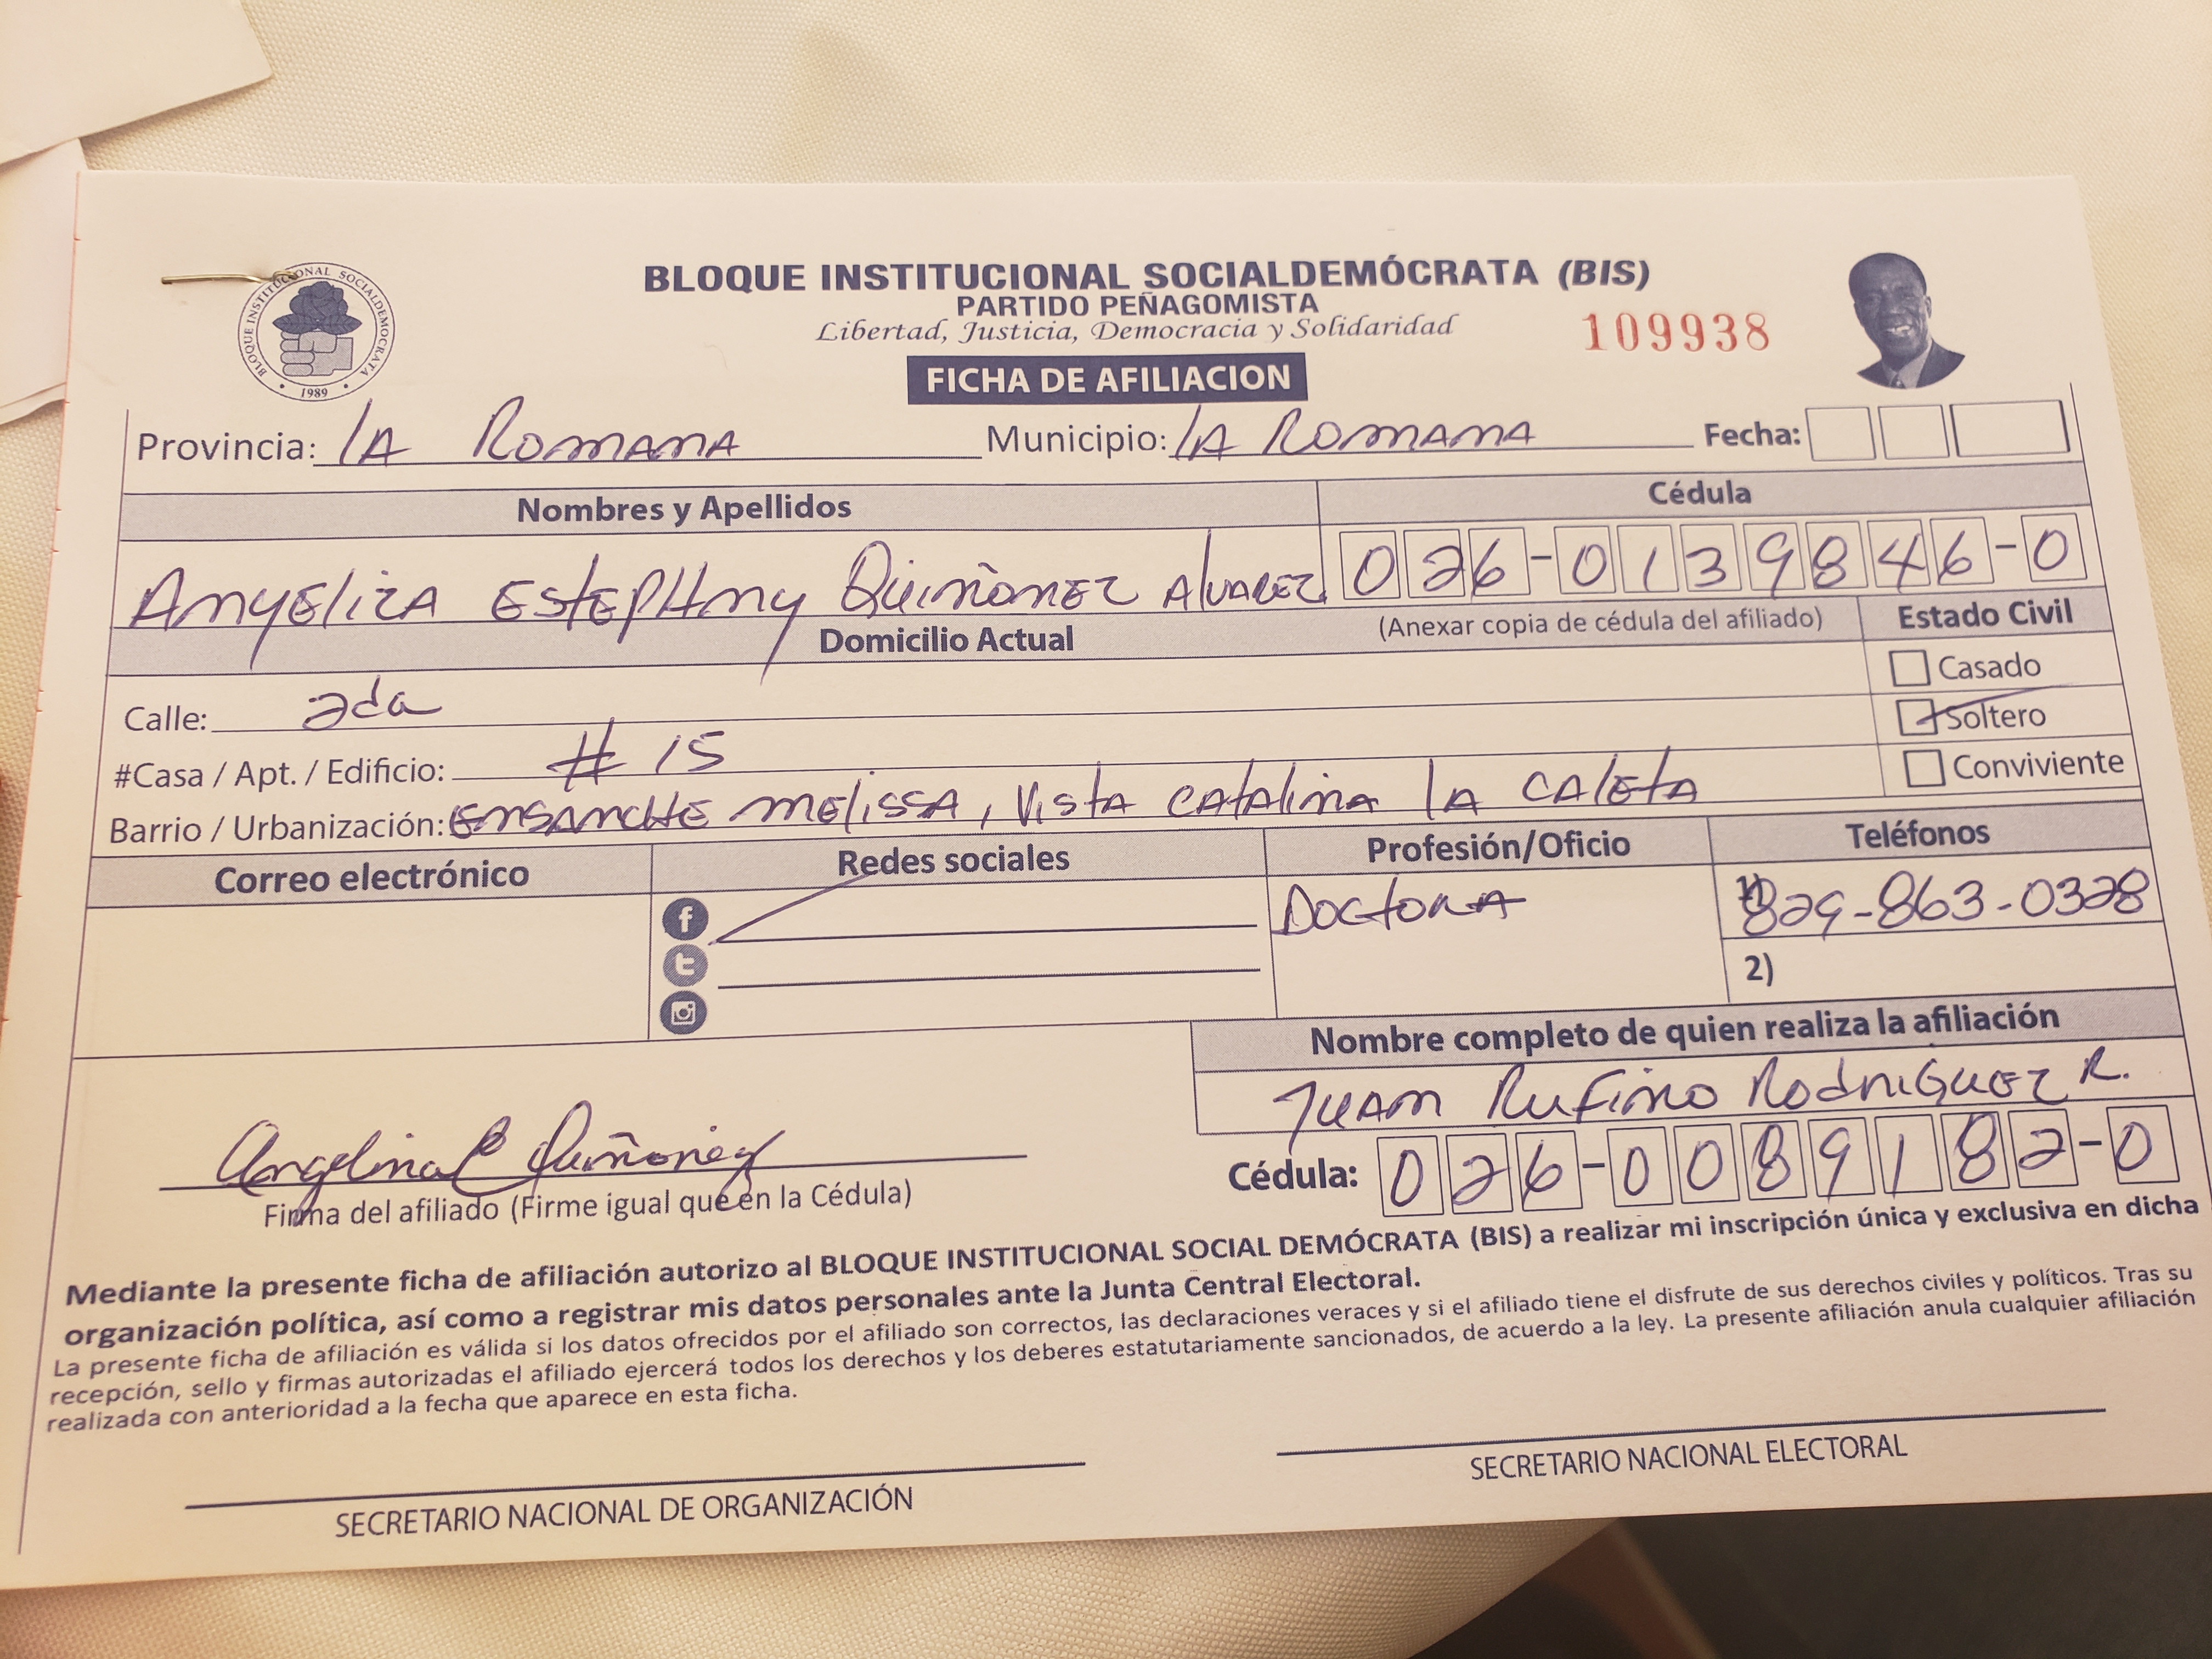 BLOQUE INSTITUCIONAL SOCIALDEMOCRATA
1989
BLOQUE INSTITUCIONAL SOCIALDEMÓCRATA (BIS)
PARTIDO PEÑAGOMISTA
Libertad, Justicia, Democracia y Solidaridad
109938
FICHA DE AFILIACION
Provincia: LA ROMANA Municipio: LA ROMANA Fecha:
Nombres y Apellidos Cédula
ANYELIZA ESTEPHANY QUIÑONEZ ALVAREZ 026-0139846-0
Domicilio Actual (Anexar copia de cédula del afiliado) Estado Civil
Casado
Calle: 2da
Soltero
#Casa / Apt. / Edificio: # 15
Conviviente
Barrio / Urbanización: ENSANCHE MELISSA, VISTA CATALINA LA CALETA
Correo electrónico Redes sociales Profesión/Oficio Teléfonos
DOCTORA 1) 829-863-0328
2)
Nombre completo de quien realiza la afiliación
JUAN RUFINO RODRIGUEZ R.
Quiñonez
Cédula: 026-0089182-0
Firma del afiliado (Firme igual que en la Cédula)
Mediante la presente ficha de afiliación autorizo al BLOQUE INSTITUCIONAL SOCIAL DEMÓCRATA (BIS) a realizar mi inscripción única y exclusiva en dicha
organización política, así como a registrar mis datos personales ante la Junta Central Electoral.
La presente ficha de afiliación es válida si los datos ofrecidos por el afiliado son correctos, las declaraciones veraces y si el afiliado tiene el disfrute de sus derechos civiles y políticos. Tras su
recepción, sello y firmas autorizadas el afiliado ejercerá todos los derechos y los deberes estatutariamente sancionados, de acuerdo a la ley. La presente afiliación anula cualquier afiliación
realizada con anterioridad a la fecha que aparece en esta ficha.
SECRETARIO NACIONAL DE ORGANIZACIÓN
SECRETARIO NACIONAL ELECTORAL